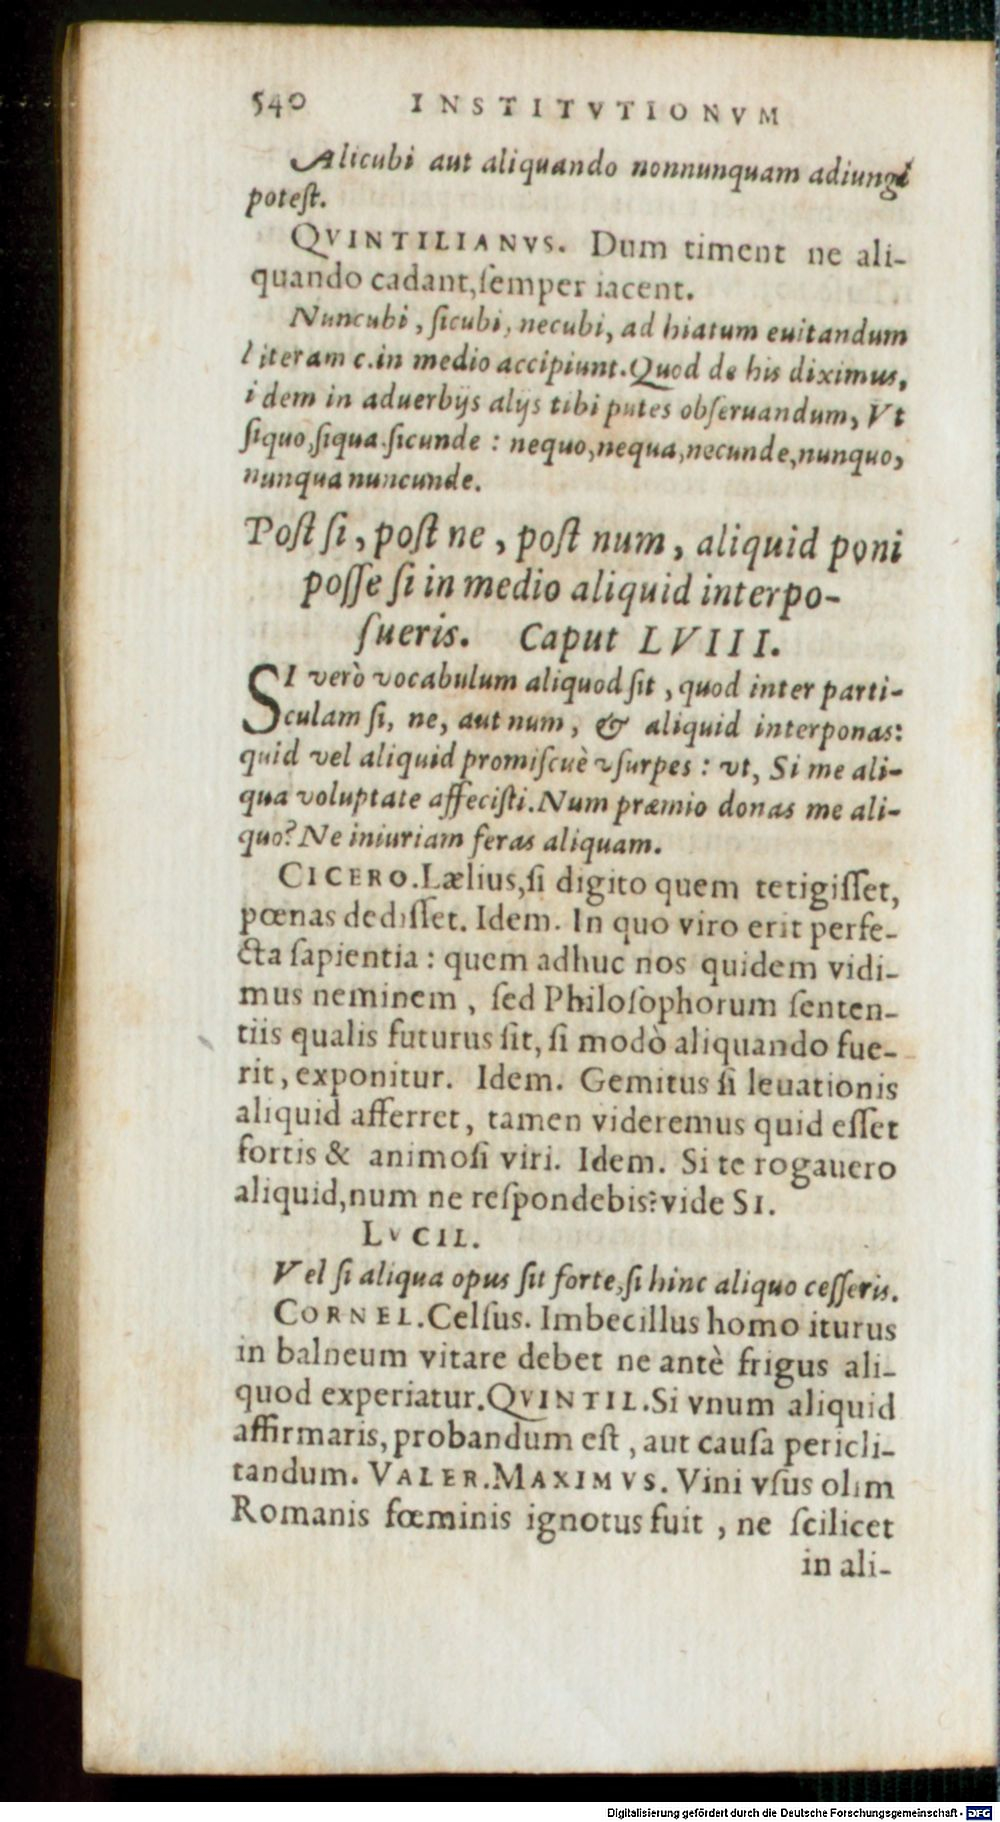 540 INSTITVTIONVM
Alicubi aut aliquando nonnunquam adiungi
poteſt.
QVINTILIANVS. Dum timent ne ali-
quando cadant,ſemper iacent.
Nuncubi, ſicubi, necubi, ad hiatum euitandum
literam c.in medio accipiunt.Quod de his diximus,
idem in aduerbijs alijs tibi putes obſeruandum, Vt
ſiquo,ſiqua.ſicunde : nequo,nequa,necunde,nunquo,
nunqua nuncunde.
Poſt ſi, poſt ne, poſt num, aliquid poni
poſſe ſi in medio aliquid interpo-
ſueris. Caput LVIII.
SI verò vocabulum aliquod ſit, quod inter parti-
culam ſi, ne, aut num, & aliquid interponas:
quid vel aliquid promiſcuè vſurpes : vt, Si me ali-
qua voluptate affeciſti.Num præmio donas me ali-
quo? Ne iniuriam feras aliquam.
CICERO.Lælius,ſi digito quem tetigiſſet,
pœnas dediſſet. Idem. In quo viro erit perfe-
cta ſapientia : quem adhuc nos quidem vidi-
mus neminem, ſed Philoſophorum ſenten-
tiis qualis futurus ſit, ſi modò aliquando fue-
rit, exponitur. Idem. Gemitus ſi leuationis
aliquid afferret, tamen videremus quid eſſet
fortis & animoſi viri. Idem. Si te rogauero
aliquid,num ne reſpondebis?vide SI.
LVCIL.
Vel ſi aliqua opus ſit forte,ſi hinc aliquo ceſſeris.
CORNEL.Celſus. Imbecillus homo iturus
in balneum vitare debet ne antè frigus ali-
quod experiatur.QVINTIL.Si vnum aliquid
affirmaris, probandum eſt, aut cauſa pericli-
tandum. VALER.MAXIMVS. Vini vſus olim
Romanis fœminis ignotus fuit, ne ſcilicet
in ali-
Digitalisierung gefördert durch die Deutsche Forschungsgemeinschaft - DFG